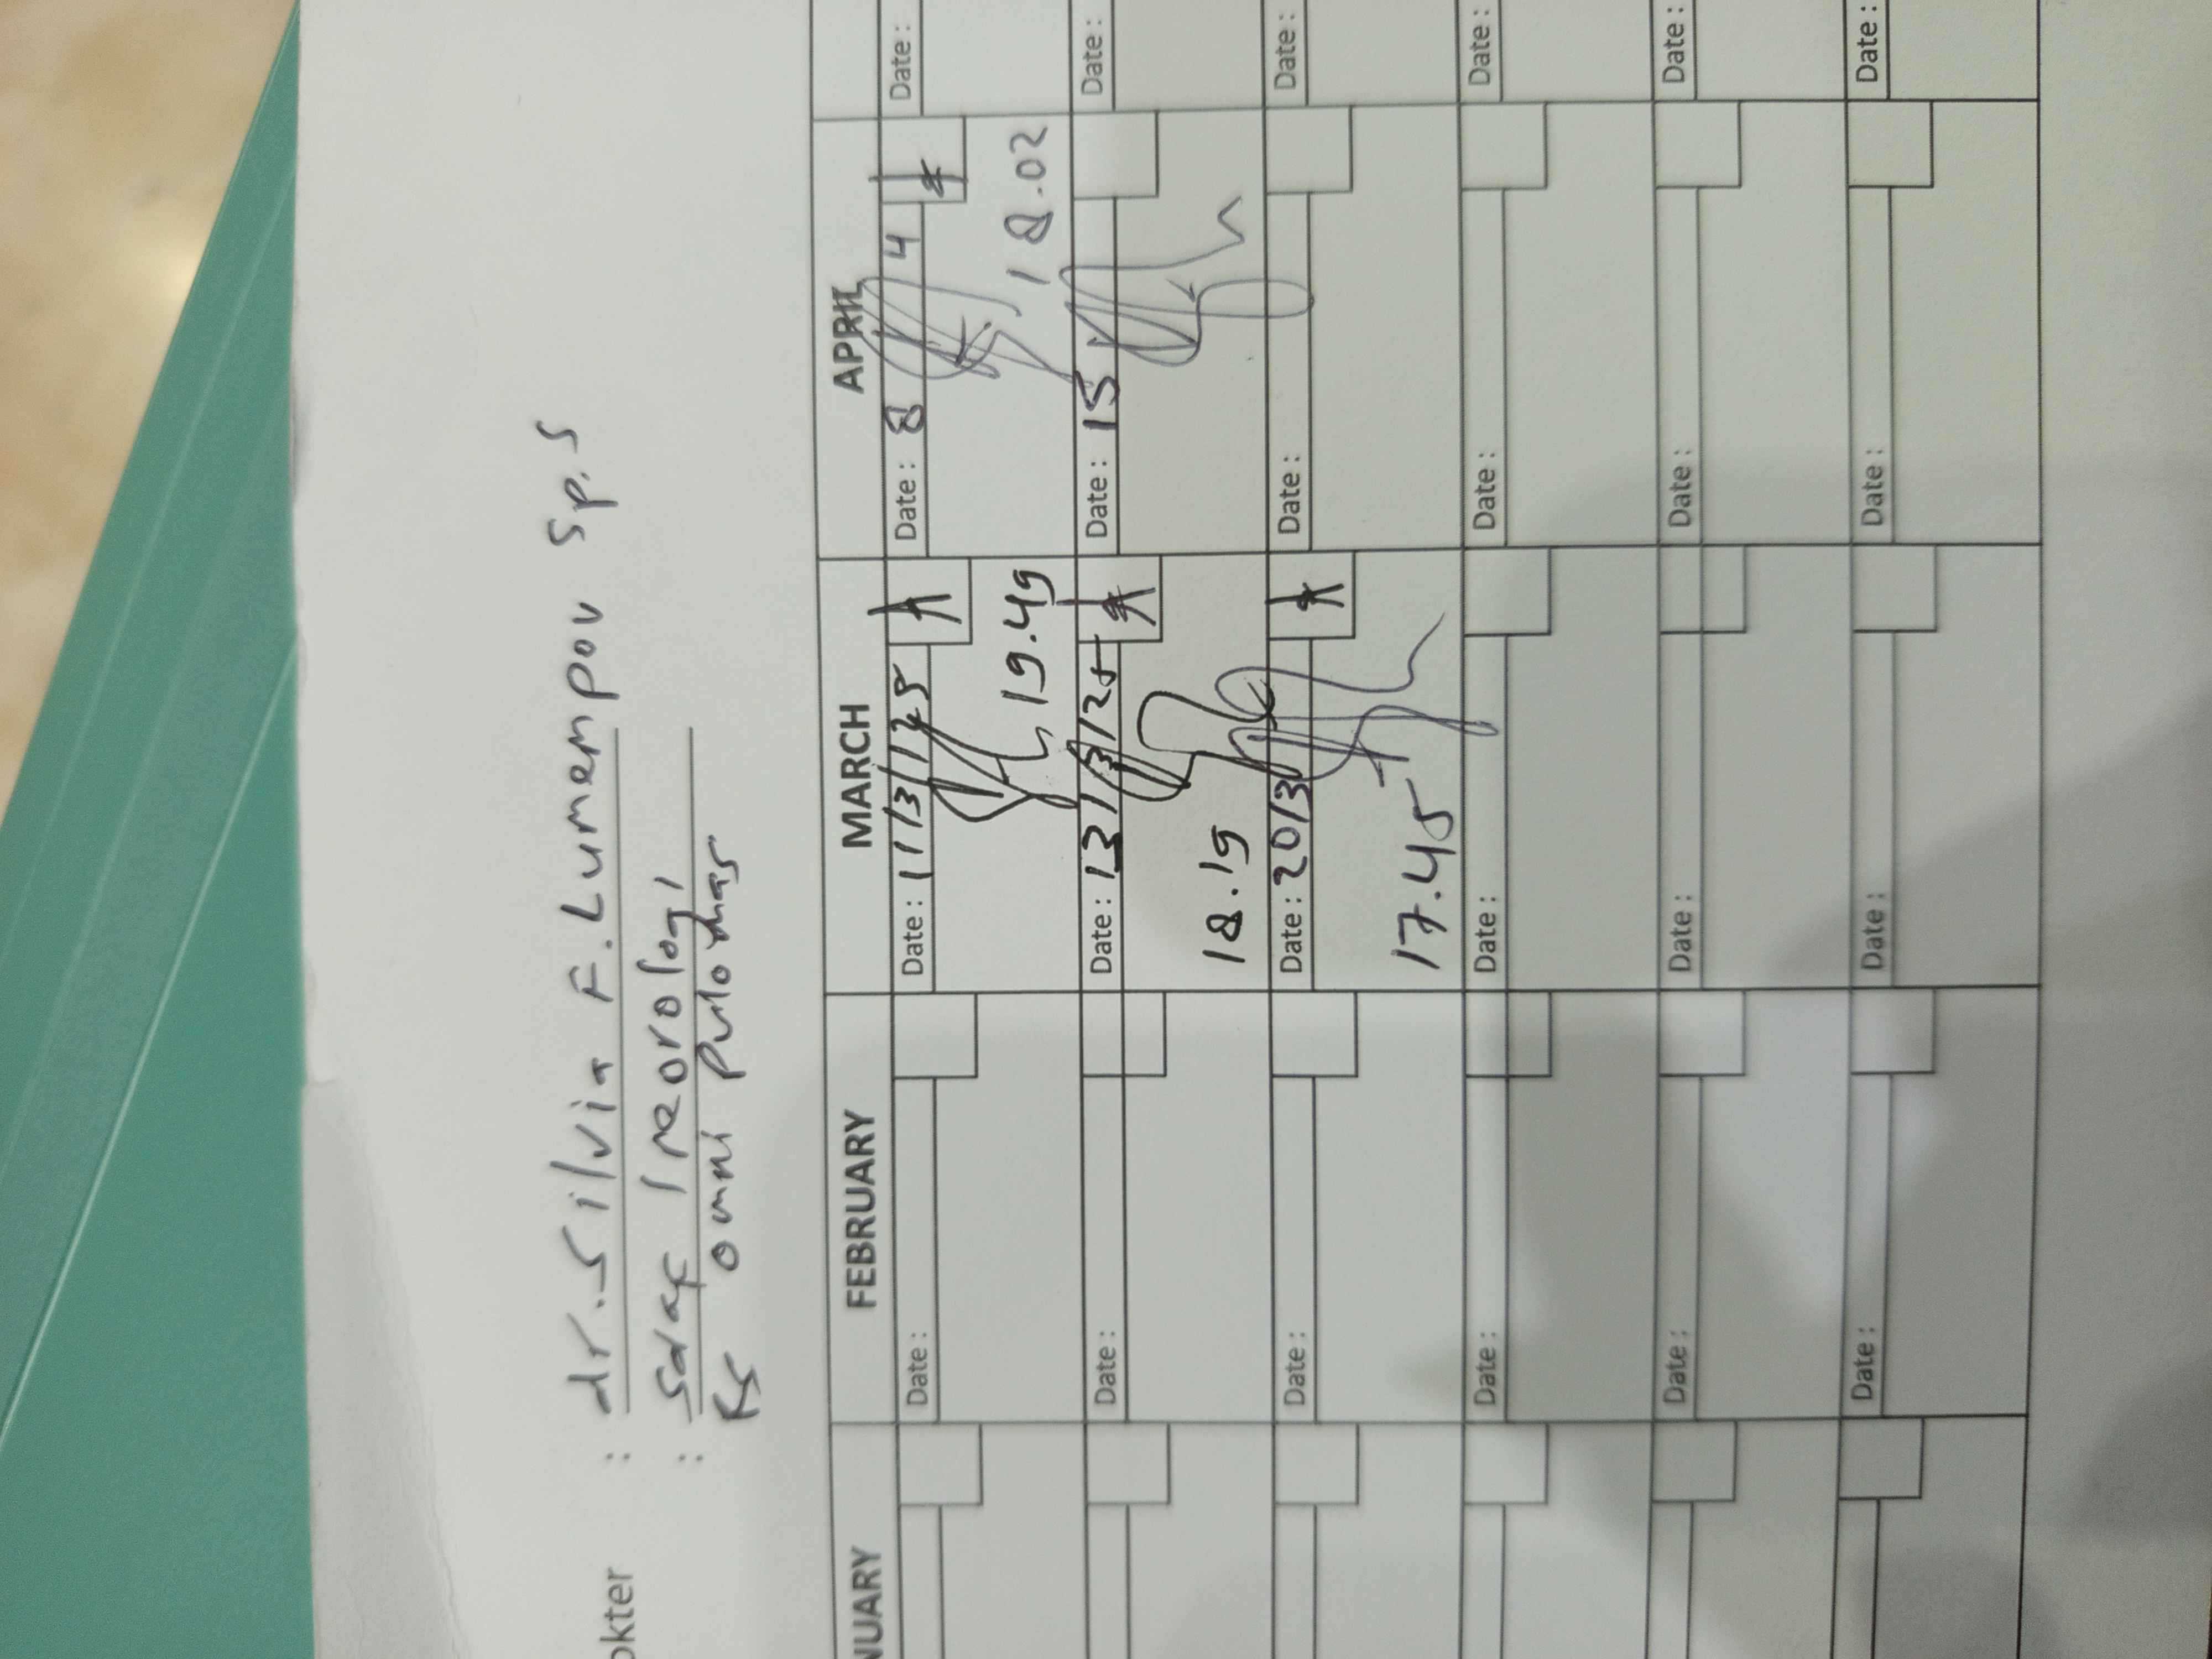 okter : dr. Silvia F. Lumempouw Sp.S
: Saraf / neorologi
RS omni Pulomas
NUARY FEBRUARY MARCH APRIL
Date : Date : 11/3/25 Date : 8 4 Date :
19.49 18.02
Date : Date : 13/3/25 Date : 15 Date :
18.19
Date : Date : 20/3 Date : Date :
17.45
Date : Date : Date : Date :
Date : Date : Date : Date :
Date : Date : Date : Date :